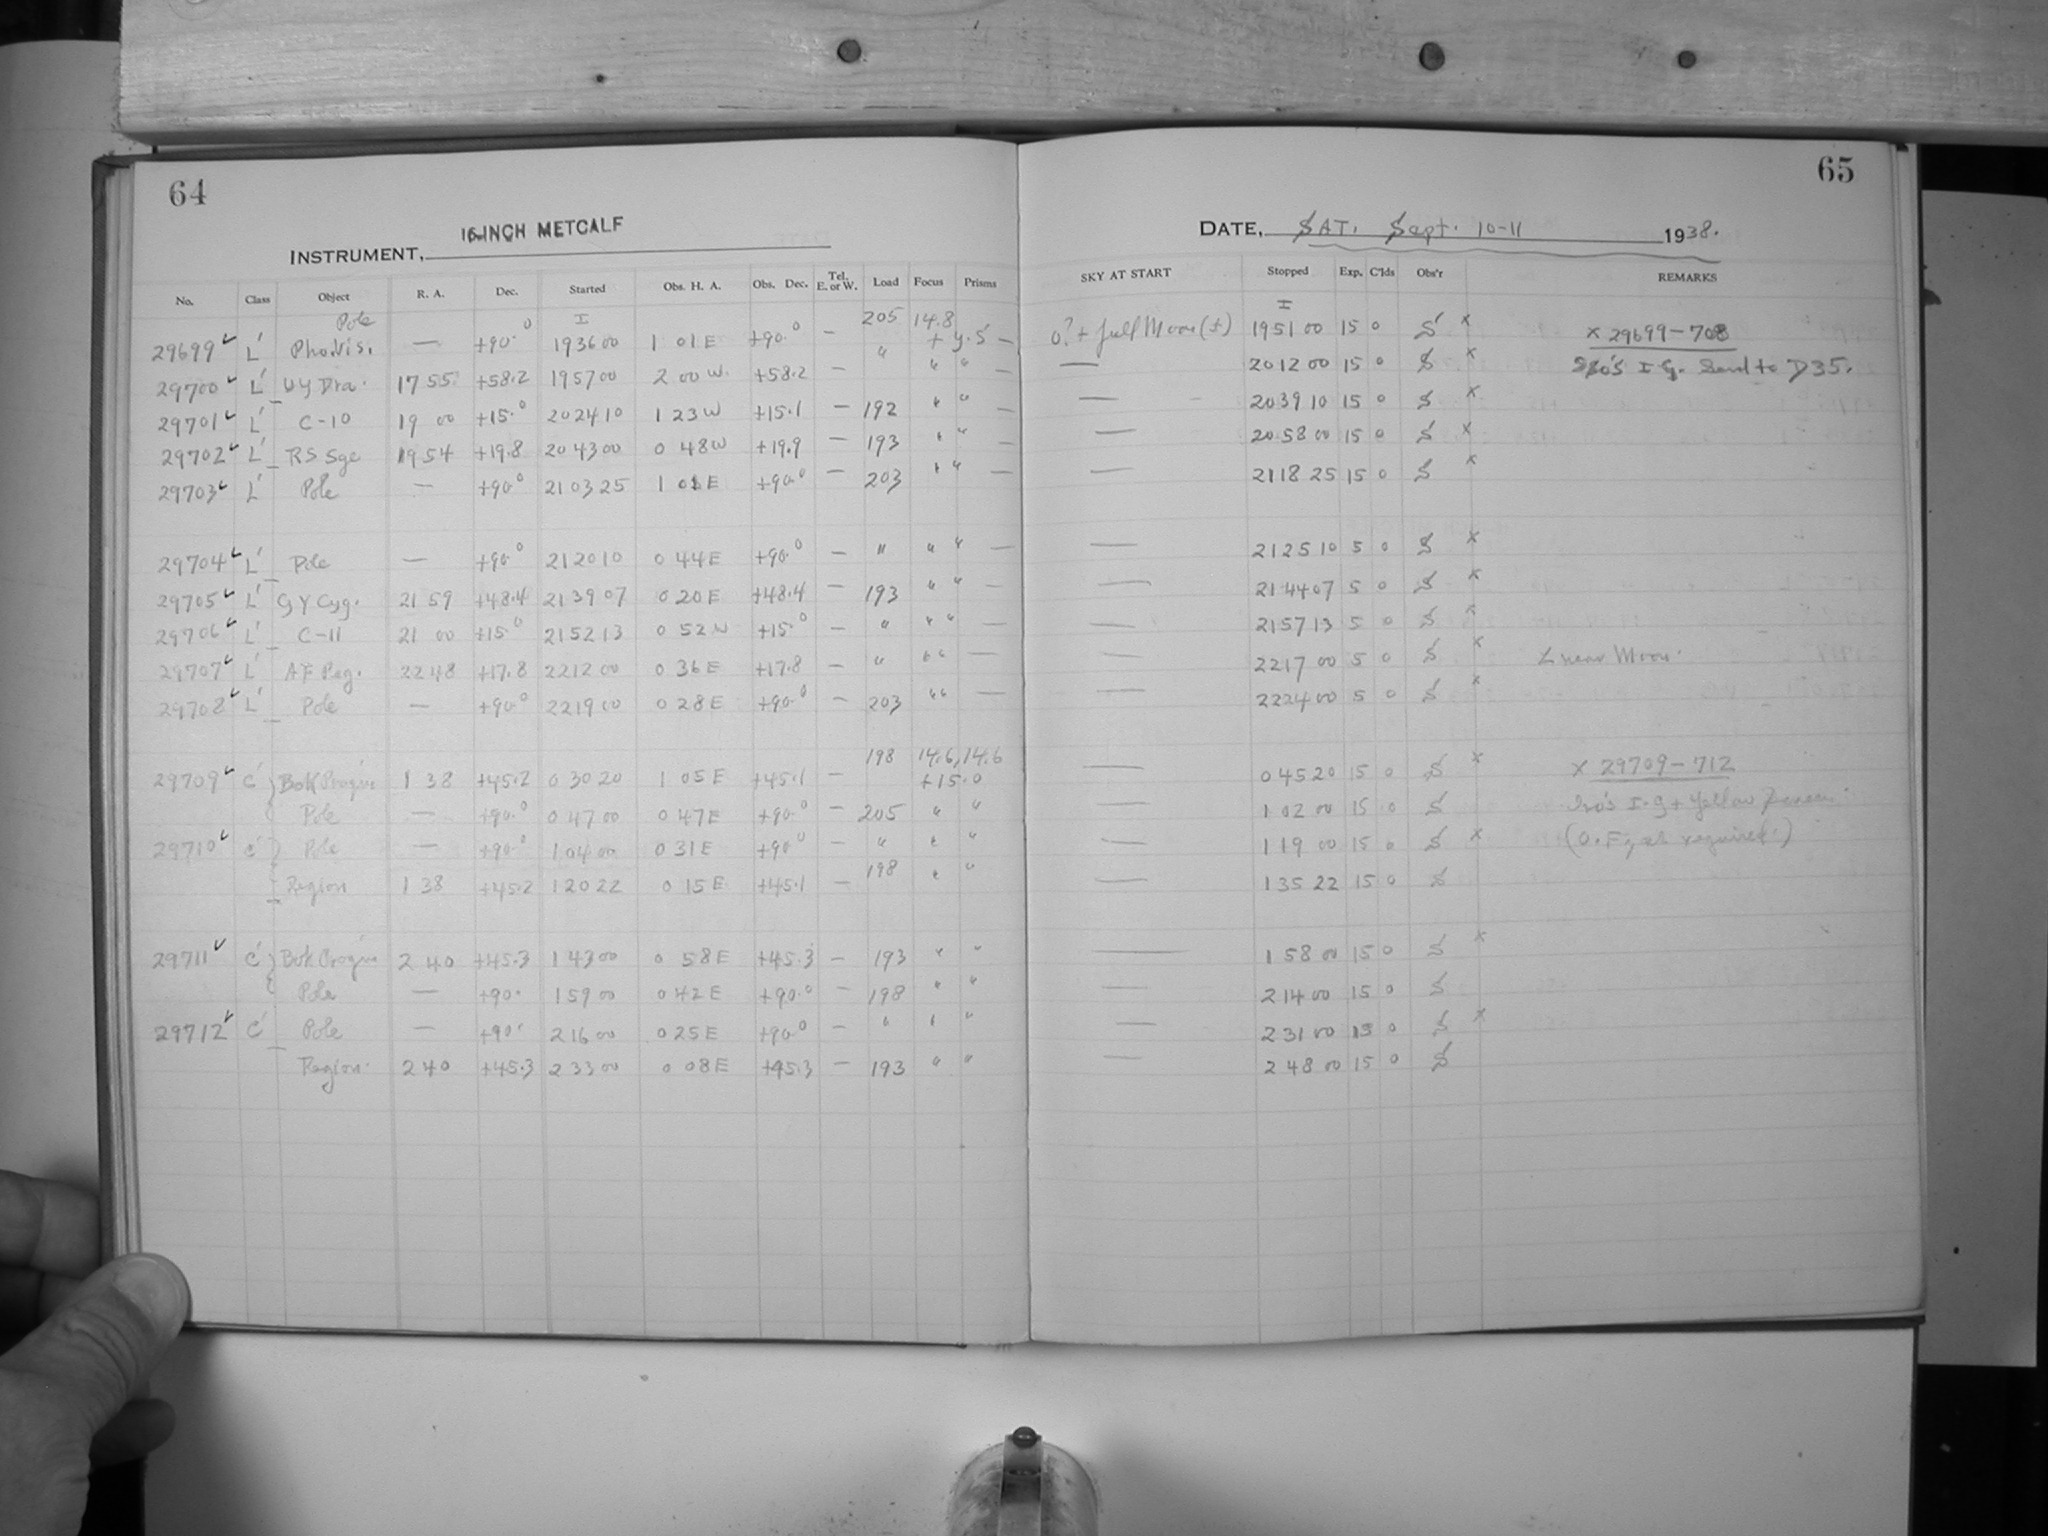 64
16-INCH METCALF
INSTRUMENT,
No. Class Object R. A. Dec. Started Obs. H. A. Obs. Dec. Tel. E. or W. Load Focus Prisms
Pole I 205 14.8
29699 L' Pho.Vis. — +90.0 19 36 00 1 01 E +90.0 — " + y.s —
29700 L' UY Dra. 17 55 +58.2 19 57 00 2 00 W. +58.2 — " " —
29701 L' C-10 19 00 +15.0 20 24 10 1 23 W +15.1 — 192 " " —
29702 L' RS Sge 19 54 +19.8 20 43 00 0 48 W +19.9 — 193 " " —
29703 L' Pole — +90.0 21 03 25 1 01 E +90.0 — 203 " " —
29704 L' Pole — +90.0 21 20 10 0 44 E +90.0 — " " " —
29705 L' GY Cyg. 21 59 +48.4 21 39 07 0 20 E +48.4 — 193 " " —
29706 L' C-11 21 00 +15.0 21 52 13 0 52 W +15.0 — " " " —
29707 L' AF Peg. 22 48 +17.8 22 12 00 0 36 E +17.8 — " " " —
29708 L' Pole — +90.0 22 19 00 0 28 E +90.0 — 203 " " —
198 14.6, 14.6
29709 C' Bok 1 38 +45.2 0 30 20 1 05 E +45.1 — +15.0
Pole — +90.0 0 47 00 0 47 E +90.0 — 205 " "
29710 C' Pole — +90.0 1 04 00 0 31 E +90.0 — " " "
Region 1 38 +45.2 1 20 22 0 15 E +45.1 — 198 " "
29711 C' Bok 2 40 +45.3 1 43 00 0 58 E +45.3 — 193 " "
Pole — +90. 1 59 00 0 42 E +90.0 — 198 " "
29712 C' Pole — +90. 2 16 00 0 25 E +90.0 — " " "
Region. 2 40 +45.3 2 33 00 0 08 E +45.3 — 193 " "
65
DATE, SAT. Sept. 10-11 1938.
SKY AT START Stopped Exp. C'lds Obs'r REMARKS
I
0? + full Moon (+) 19 51 00 15 0 S x x 29699-708
— 20 12 00 15 0 S x I G. Send to D35.
— 20 39 10 15 0 S x
— 20 58 00 15 0 S x
— 21 18 25 15 0 S x
— 21 25 10 5 0 S x
— 21 44 07 5 0 S x
— 21 57 13 5 0 S x
— 22 17 00 5 0 S x near Moon.
— 22 24 00 5 0 S x
— 0 45 20 15 0 S x x 29709-712
— 1 02 00 15 0 S I.G + Yellow
— 1 19 00 15 0 S x
— 1 35 22 15 0 S
— 1 58 00 15 0 S x
— 2 14 00 15 0 S
— 2 31 00 15 0 S x
— 2 48 00 15 0 S